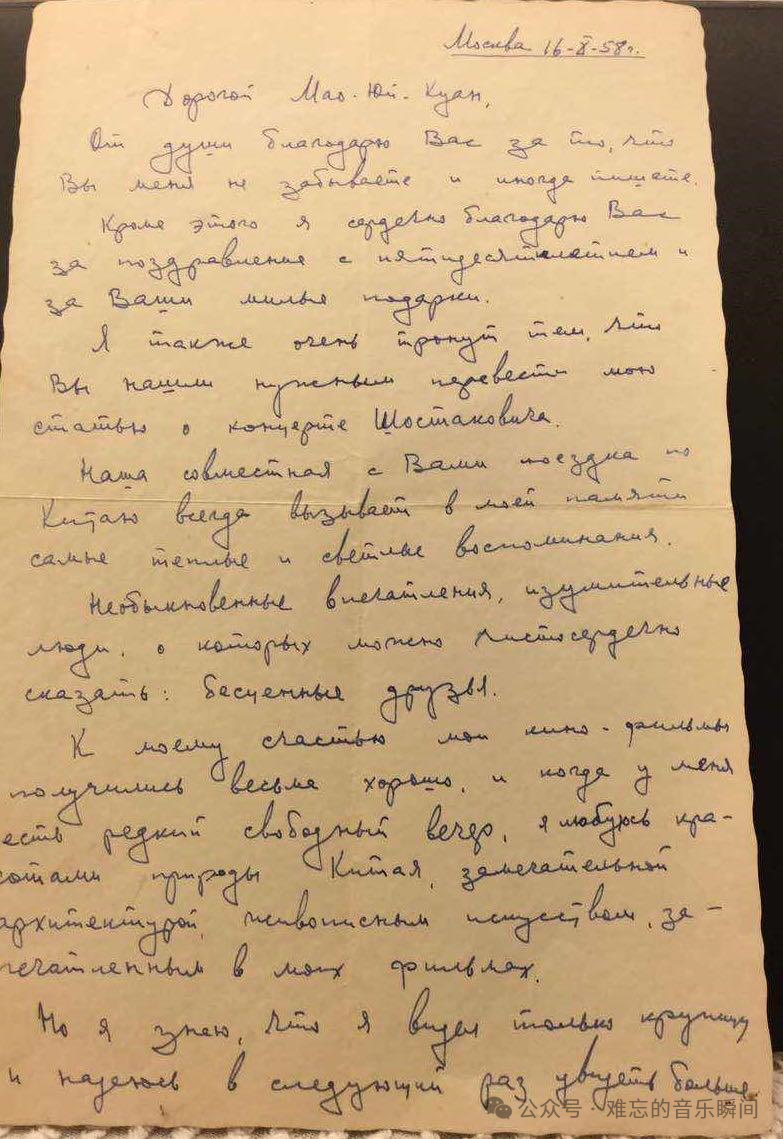 Москва 16-X-58 г.
Дорогой Мао-Юй-Куан,
От души благодарю Вас за то, что
Вы меня не забываете и иногда пишете.
Кроме этого я сердечно благодарю Вас
за поздравление с пятидесятилетием и
за Ваши милые подарки.
Я также очень тронут тем, что
Вы нашли нужным перевести мою
статью о концерте Шостаковича.
Наша совместная с Вами поездка по
Китаю всегда вызывает в моей памяти
самые теплые и светлые воспоминания.
Необыкновенные впечатления, изумительные
люди, о которых можно чистосердечно
сказать: бесценные друзья.
К моему счастью мои кино-фильмы
получились весьма хорошо, и когда у меня
есть редкий свободный вечер, я любуюсь кра-
сотами природы Китая, замечательной
архитектурой, живописным искусством, за-
печатленным в моих фильмах.
Но я знаю, что я видел только крупицу
и надеюсь в следующий раз увидеть больше.
公众号·难忘的音乐瞬间